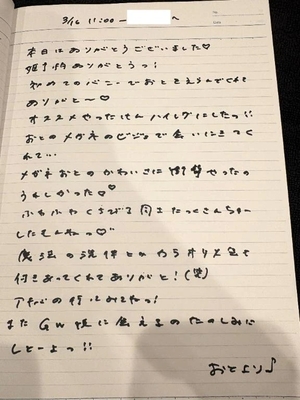 3/16 11:00 – へ
本日はありがとうございました♡
姫予約ありがとうっ!
初めてのバニーでおとさえらんでくれて
ありがと〜♡
オススメやったけんハイレグにしたっ!!
おとのメガネのビジュで会いにきてく
れて…
メガネおとのかわいさに衝撃やったの
うれしかった♡♡
ふわふわくちびる同士たっくさんちゅー
したもんねっ♡
魔法の洗体とかやらオリメ兄で
付きあってくれてありがと!(笑)
の みてねっ!
またGW後に会えるのたのしみに
しとーよっ!!
おとより♪